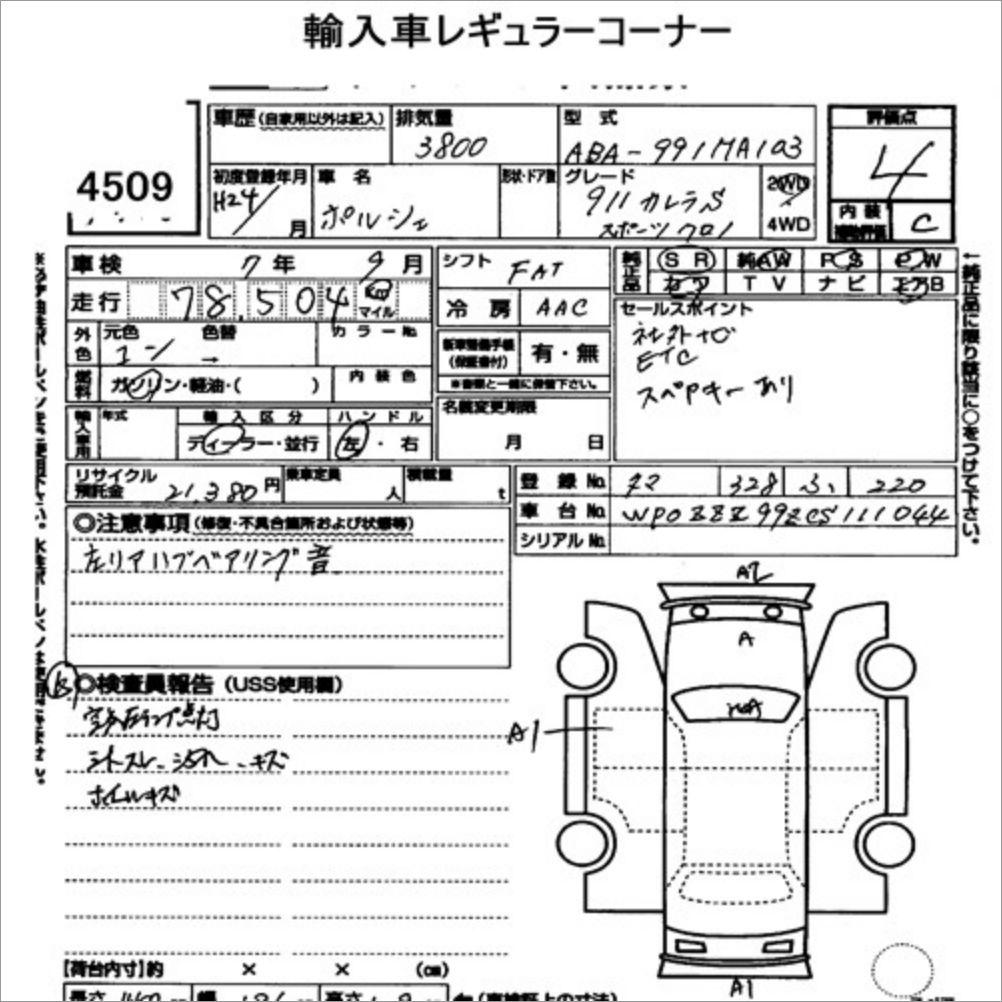 輸入車レギュラーコーナー
4509
車歴(自家用以外は記入) 排気量 型式 評価点
3800 ABA-991MA103 4
初度登録年月 車名 形状・ドア数 グレード 2WD
H24/ 月 ポルシェ 911カレラS 4WD
スポーツクロノ
内装 C
車検 7年 9月 シフト FAT 純正品 SR 純AW PS PW
カワ TV ナビ エアB
走行 78,504 km マイル 冷房 AAC
セールスポイント
外色 元色 色替 カラーNo.
ETC
スペアキーあり
新車整備手帳(保証書付) 有・無
※書類と一緒に保管下さい。
燃料 ガソリン・軽油・( ) 内装色
名義変更期限
月 日
輸入車用 年式 輸入区分 ハンドル
ディーラー・並行 左・右
リサイクル預託金 21,380円 乗車定員 人 積載量 t
登録No. タマ 328 ふ 220
車台No. WP0ZZZ99ZCS111044
シリアルNo.
◎注意事項(修復・不具合箇所および状態等)
左リアハブベアリング音
◎検査員報告(USS使用欄)
シートスレ、汚れ、キズ
ホイールキズ
A2
A
A1
A1
【荷台内寸】約 × × (cm)
長さ 幅 高さ
(車検証上の寸法)
←純正品に限り該当に○をつけて下さい。